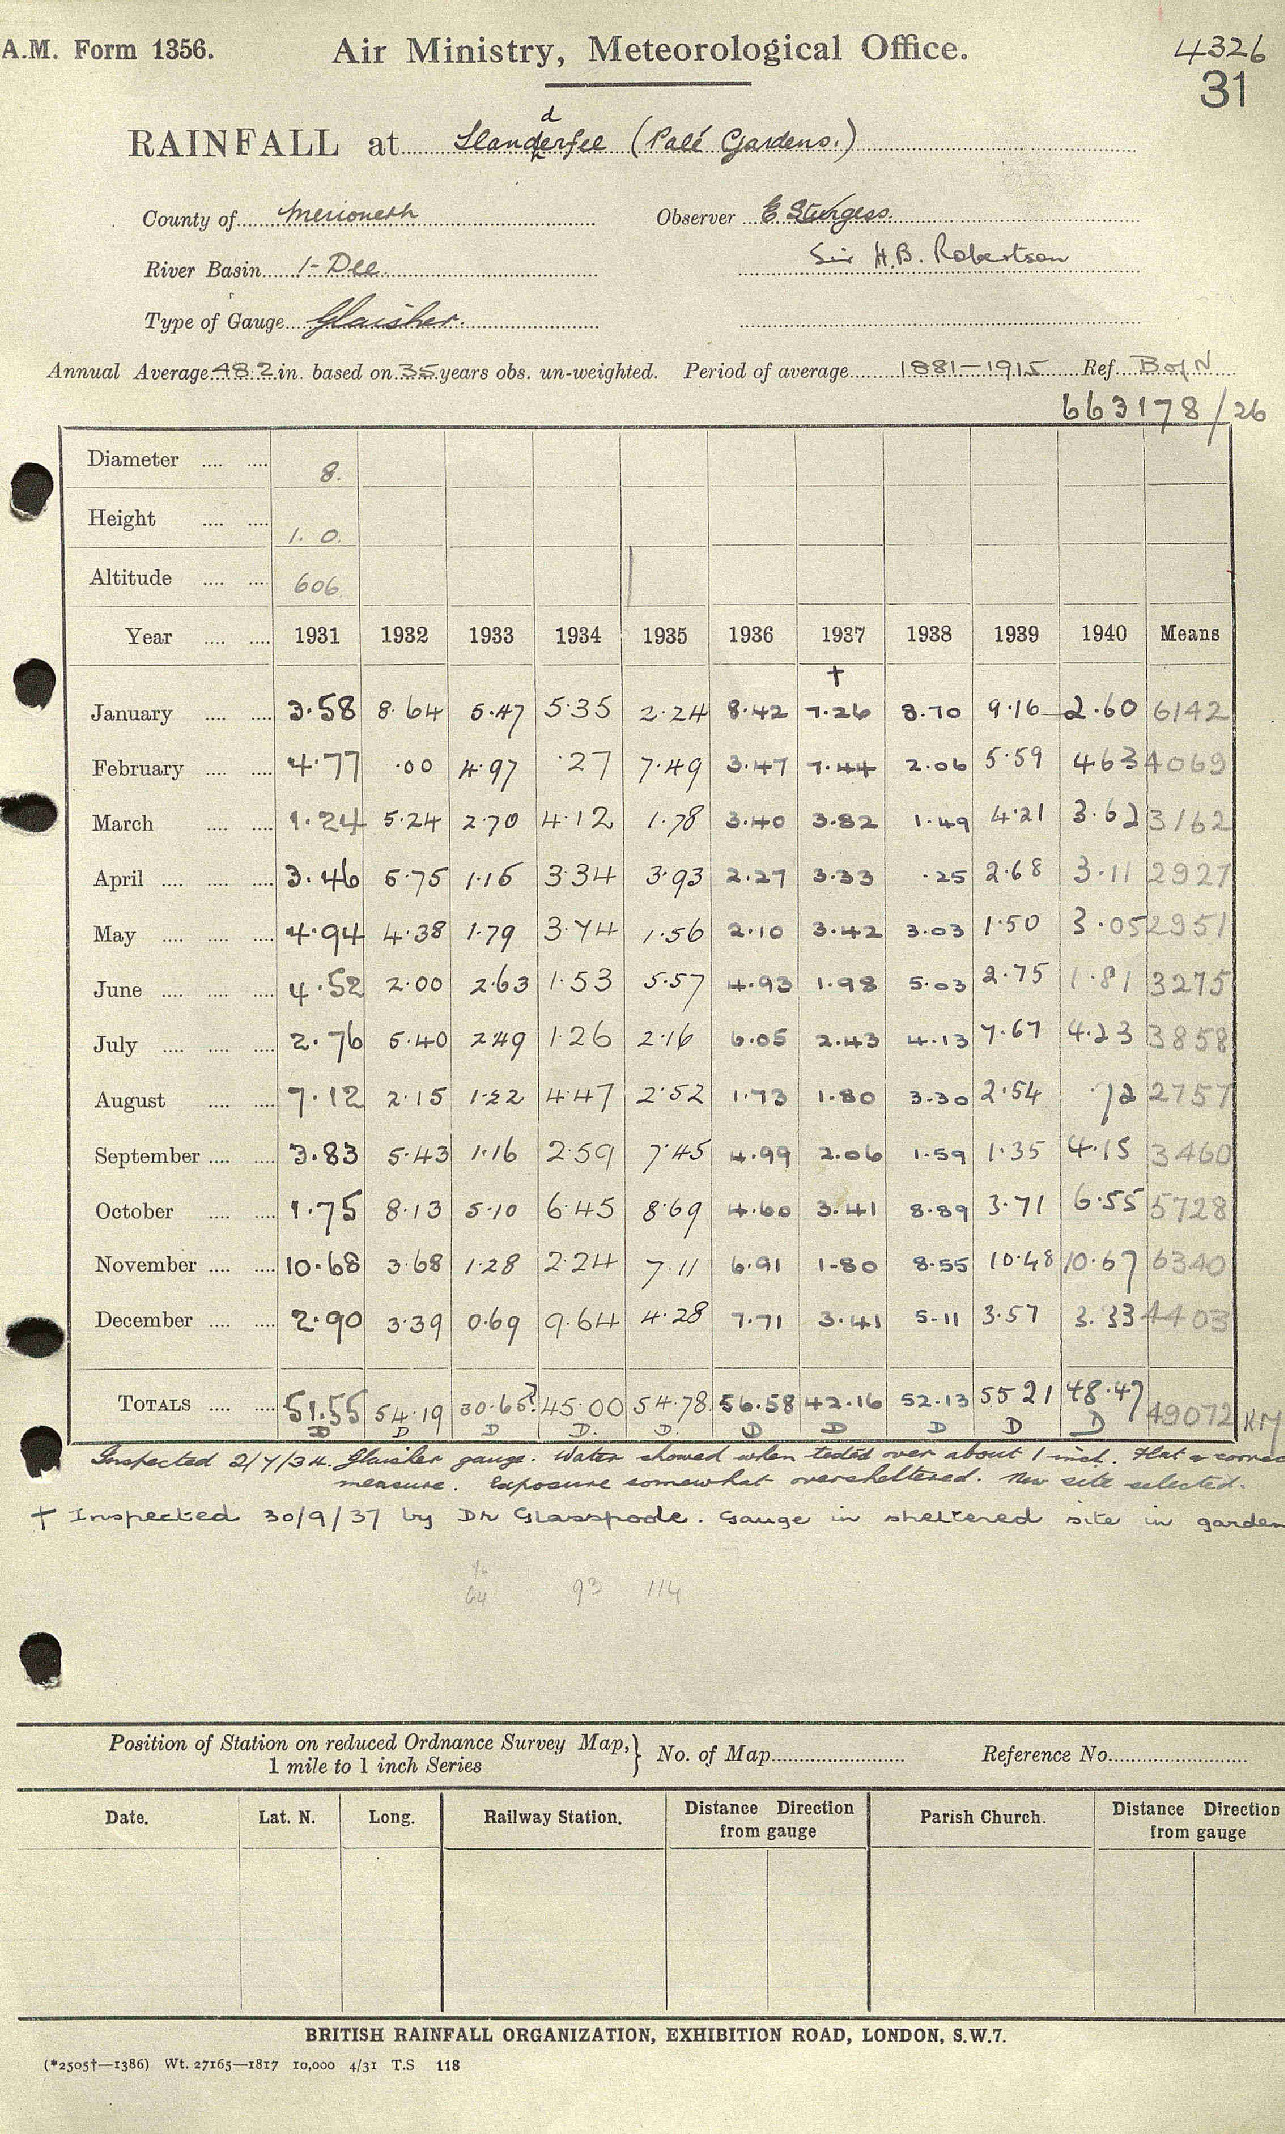 A.M. Form 1356. Air Ministry, Meteorological Office. 4326
31
RAINFALL at Llandderfel (Palé Gardens.)
County of Merioneth Observer E Sturgess
River Basin 1-Dee. Sir H.B. Robertson
Type of Gauge Glaisher.
Annual Average 48.2 in. based on 35 years obs. un-weighted. Period of average 1881-1915 Ref. B of N
663178/26
Diameter 8.
Height 1. 0.
Altitude 606
Year 1931 1932 1933 1934 1935 1936 1937 1938 1939 1940 Means
†
January 3.58 8.64 5.47 5.35 2.24 8.42 7.26 8.70 9.16 2.60 6142
February 4.77 .00 4.97 .27 7.49 3.47 7.44 2.06 5.59 4.63 4069
March 1.24 5.24 2.70 4.12 1.78 3.40 3.82 1.49 4.21 3.62 3162
April 3.46 5.75 1.15 3.34 3.93 2.27 3.33 .25 2.68 3.11 2927
May 4.94 4.38 1.79 3.74 1.56 2.10 3.42 3.03 1.50 3.05 2951
June 4.52 2.00 2.63 1.53 5.57 4.93 1.98 5.03 2.75 1.81 3275
July 2.76 5.40 2.49 1.26 2.16 6.05 2.43 4.13 7.67 4.23 3858
August 7.12 2.15 1.22 4.47 2.52 1.73 1.80 3.30 2.54 .72 2757
September 3.83 5.43 1.16 2.59 7.45 4.99 2.06 1.59 1.35 4.15 3460
October 1.75 8.13 5.10 6.45 8.69 4.60 3.41 8.89 3.71 6.55 5728
November 10.68 3.68 1.28 2.24 7.11 6.91 1.80 8.55 10.48 10.67 6340
December 2.90 3.39 0.69 9.64 4.28 7.71 3.41 5.11 3.57 3.33 4403
TOTALS 51.55 54.19 30.65? 45.00 54.78 56.58 42.16 52.13 55 21 48.47 49072 KM
D D D D. D. D D D D D
Inspected 2/7/34. Glaisher gauge. Water showed when tested over about 1 inch. Flat & correc
measure. Exposure somewhat oversheltered. New site selected.
† Inspected 30/9/37 by Dr Glasspoole. Gauge in sheltered site in garden
%
64 93 114
Position of Station on reduced Ordnance Survey Map, 1 mile to 1 inch Series } No. of Map Reference No.
Date. Lat. N. Long. Railway Station. Distance Direction from gauge Parish Church. Distance Direction from gauge
BRITISH RAINFALL ORGANIZATION, EXHIBITION ROAD, LONDON, S.W.7.
(*2505†—1386) Wt. 27165—1817 10,000 4/31 T.S 118